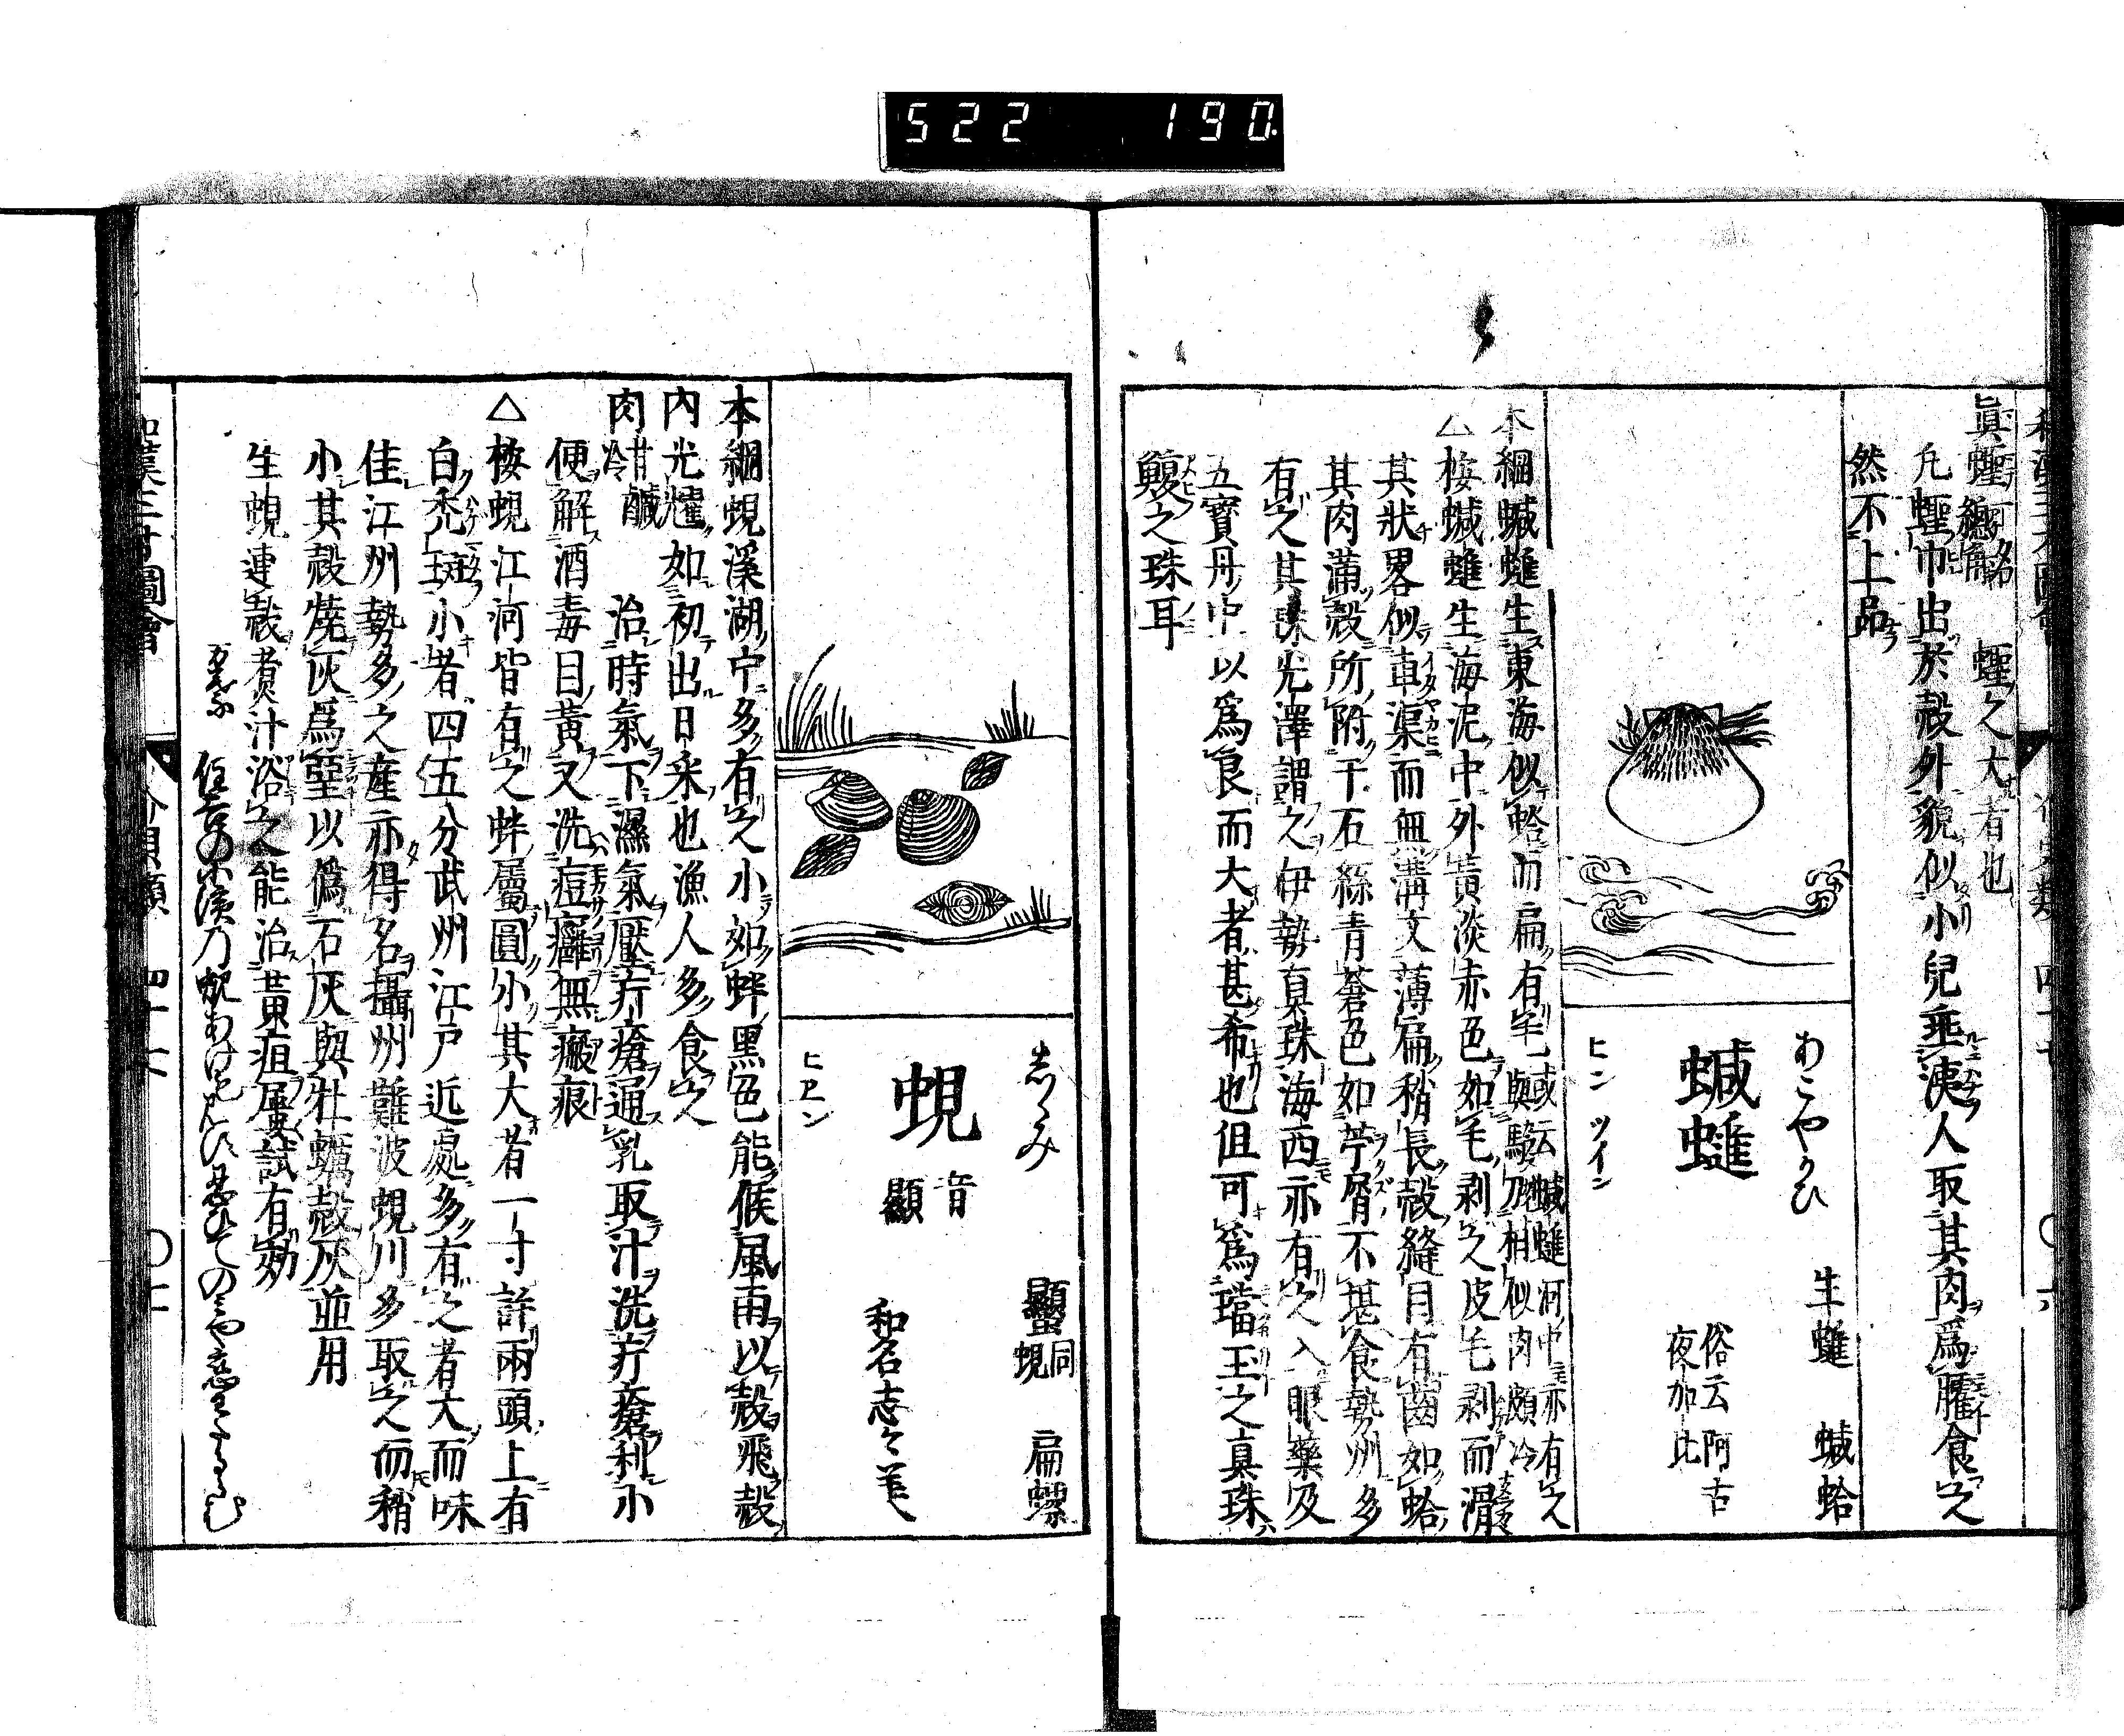 522 190
眞蟶 一名總角 蟶之大者也
凡蟶巾出於殼外貌似小兒垂洟人取其肉爲臛食之
然不上品
あこやかひ
生䗯 蝛蛤
蝛䗯
俗云阿古
夜加比
ヒン ツイン
本綱蝛䗯生東海似蛤而扁有毛
或云蝛䗯河中亦有之
與馬刀相似肉頗冷
△桉蝛䗯生海泥中外黃淡赤色如毛剥之皮毛剥而滑
其狀畧似車渠而無溝文薄扁稍長殼縫目有齒如蛤
其肉滿殼所附于石絲青蒼色如苧屑不堪食勢州多
有之其珠光澤謂之伊勢真珠海西亦有之入眼藥及
五寶丹中以爲良而大者甚希也但可爲璫玉之真珠
鰒之珠耳
志ゝみ
𧖙 蜆同 扁螺
蜆 音顯
和名志々美
ヒエン
本綱蜆溪湖中多有之小如蚌黑色能候風雨以殼飛殼
內光耀如初出日采也漁人多食之
肉 甘鹹冷 治時氣下濕氣壓疔瘡通乳取汁洗疔瘡利小
便解酒毒目黃又洗痘癰無瘢痕
△桉蜆江河皆有之蚌屬圓小其大者一寸許兩頭上有
白禿斑小者四五分武州江戸近處多有之者大而味
佳江州勢多之産亦得名攝州難波蜆川多取之而稍
小其殼燒灰爲堊以僞石灰與牡蠣殼灰並用
生蜆連殼煑汁浴之能治黃疸屢試有効
住吉の小濱乃蜆あけもせひ
和漢三才圖會 介貝類 四十七 〇七